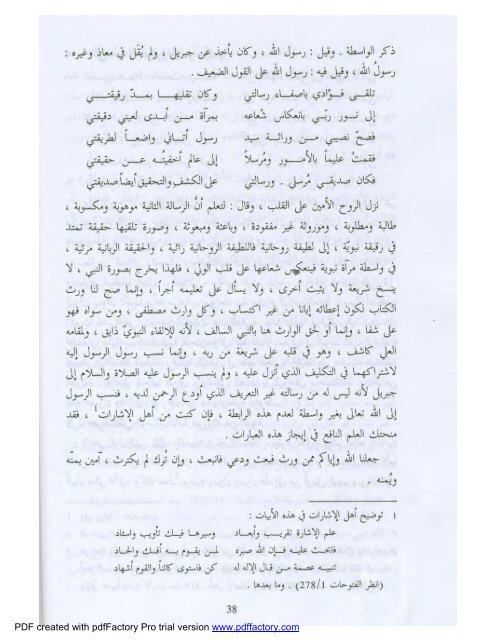 ذكر الواسطة . وقيل : رسول الله ، وكان يأخذ عن جبريل ، ولم يُقَل في معاذ وغيره :
رسولُ الله ، وقيل فيه : رسول الله على القول الضعيف .
تلقـــى فـــؤادي باصفـــاء رسالتي وكان تقليهـــا بمـــدّ رقيقتـــي
إلى نـــور ربّـــي بانعكاس شُعاعه بمرآة مـــن أبـــدى لعيني دقيقتي
فصحّ نصيبي مـــن وراثـــة سيد رسول أتـــاني واضعـــاً لطريقتي
فقمتُ عليماً بالأمـــور ومُرسلاً إلى عالم أخفيتـــه عـــن حقيقتي
فكان صديقـــي مُرسلي . ورسالتي على الكشف والتحقيق أيضاً صديقتي
نزل الروح الأمين على القلب ، وقال : لتعلم أنّ الرسالة الثانية موهوبة ومكسوبة ،
طالبة ومطلوبة ، وموروثة غير مفقودة ، وباعثة ومبعوثة ، وصورة تلقيها حقيقة تمتد
في رقيقة نبويّة ، إلى لطيفة روحانية فاللطيفة الروحانية رائية ، والحقيقة الربانية مرئية ،
في واسطة مرآة نبوية فينعكس شعاعها على قلب الولي ، فلهذا يخرج بصورة النبي ، لا
ينسخ شريعة ولا يثبت أخرى ، ولا يسأل على تعليمه أجراً ، وإنما صح لنا ورث
الكتاب لكون إعطائه إيانا من غير اكتساب ، وكل وارث مصطفى ، ومن سواه فهو
على شفا ، وإنما أو لحق الوارث هنا بالنبي السالف ، لأنه للإلقاء النبويّ ذايق ، ولمقامه
العلي كاشف ، وهو في قلبه على شريعة من ربه ، وإنما نسب رسول الرسول إليه
لاشتراكهما في التكليف الذي أنزل عليه ، ولم ينسب الرسول عليه الصلاة والسلام إلى
جبريل لأنه ليس له من رسالته غير التعريف الذي أودع الرحمن لديه ، فنسب الرسول
إلى الله تعالى بغير واسطة لعدم هذه الرابطة ، فإن كنت من أهل الإشارات1 ، فقد
منحتك العلم النافع في إيجاز هذه العبارات .
جعلنا الله وإياكم ممن ورث فبعث ودعي فانبعث ، وإن تُرك لم يكترث ، آمين بمنّه
ويُمنه .
1 توضيح أهل الإشارات في هذه الأبيات :
علم الإشارة تقريـــب وإبعـــاد وسيرهـــا فيـــك تأويب واسئاد
فابحث عليـــه فـــإن الله صيره لمـــن يقـــوم بـــه أفـــك والحـــاد
تنبيـــه عصمة مـــن قـــال الاله له كن فاستوى كائناً والقوم أشهاد
(انظر الفتوحات 278/1) . وما بعدها .
38
PDF created with pdfFactory Pro trial version www.pdffactory.com